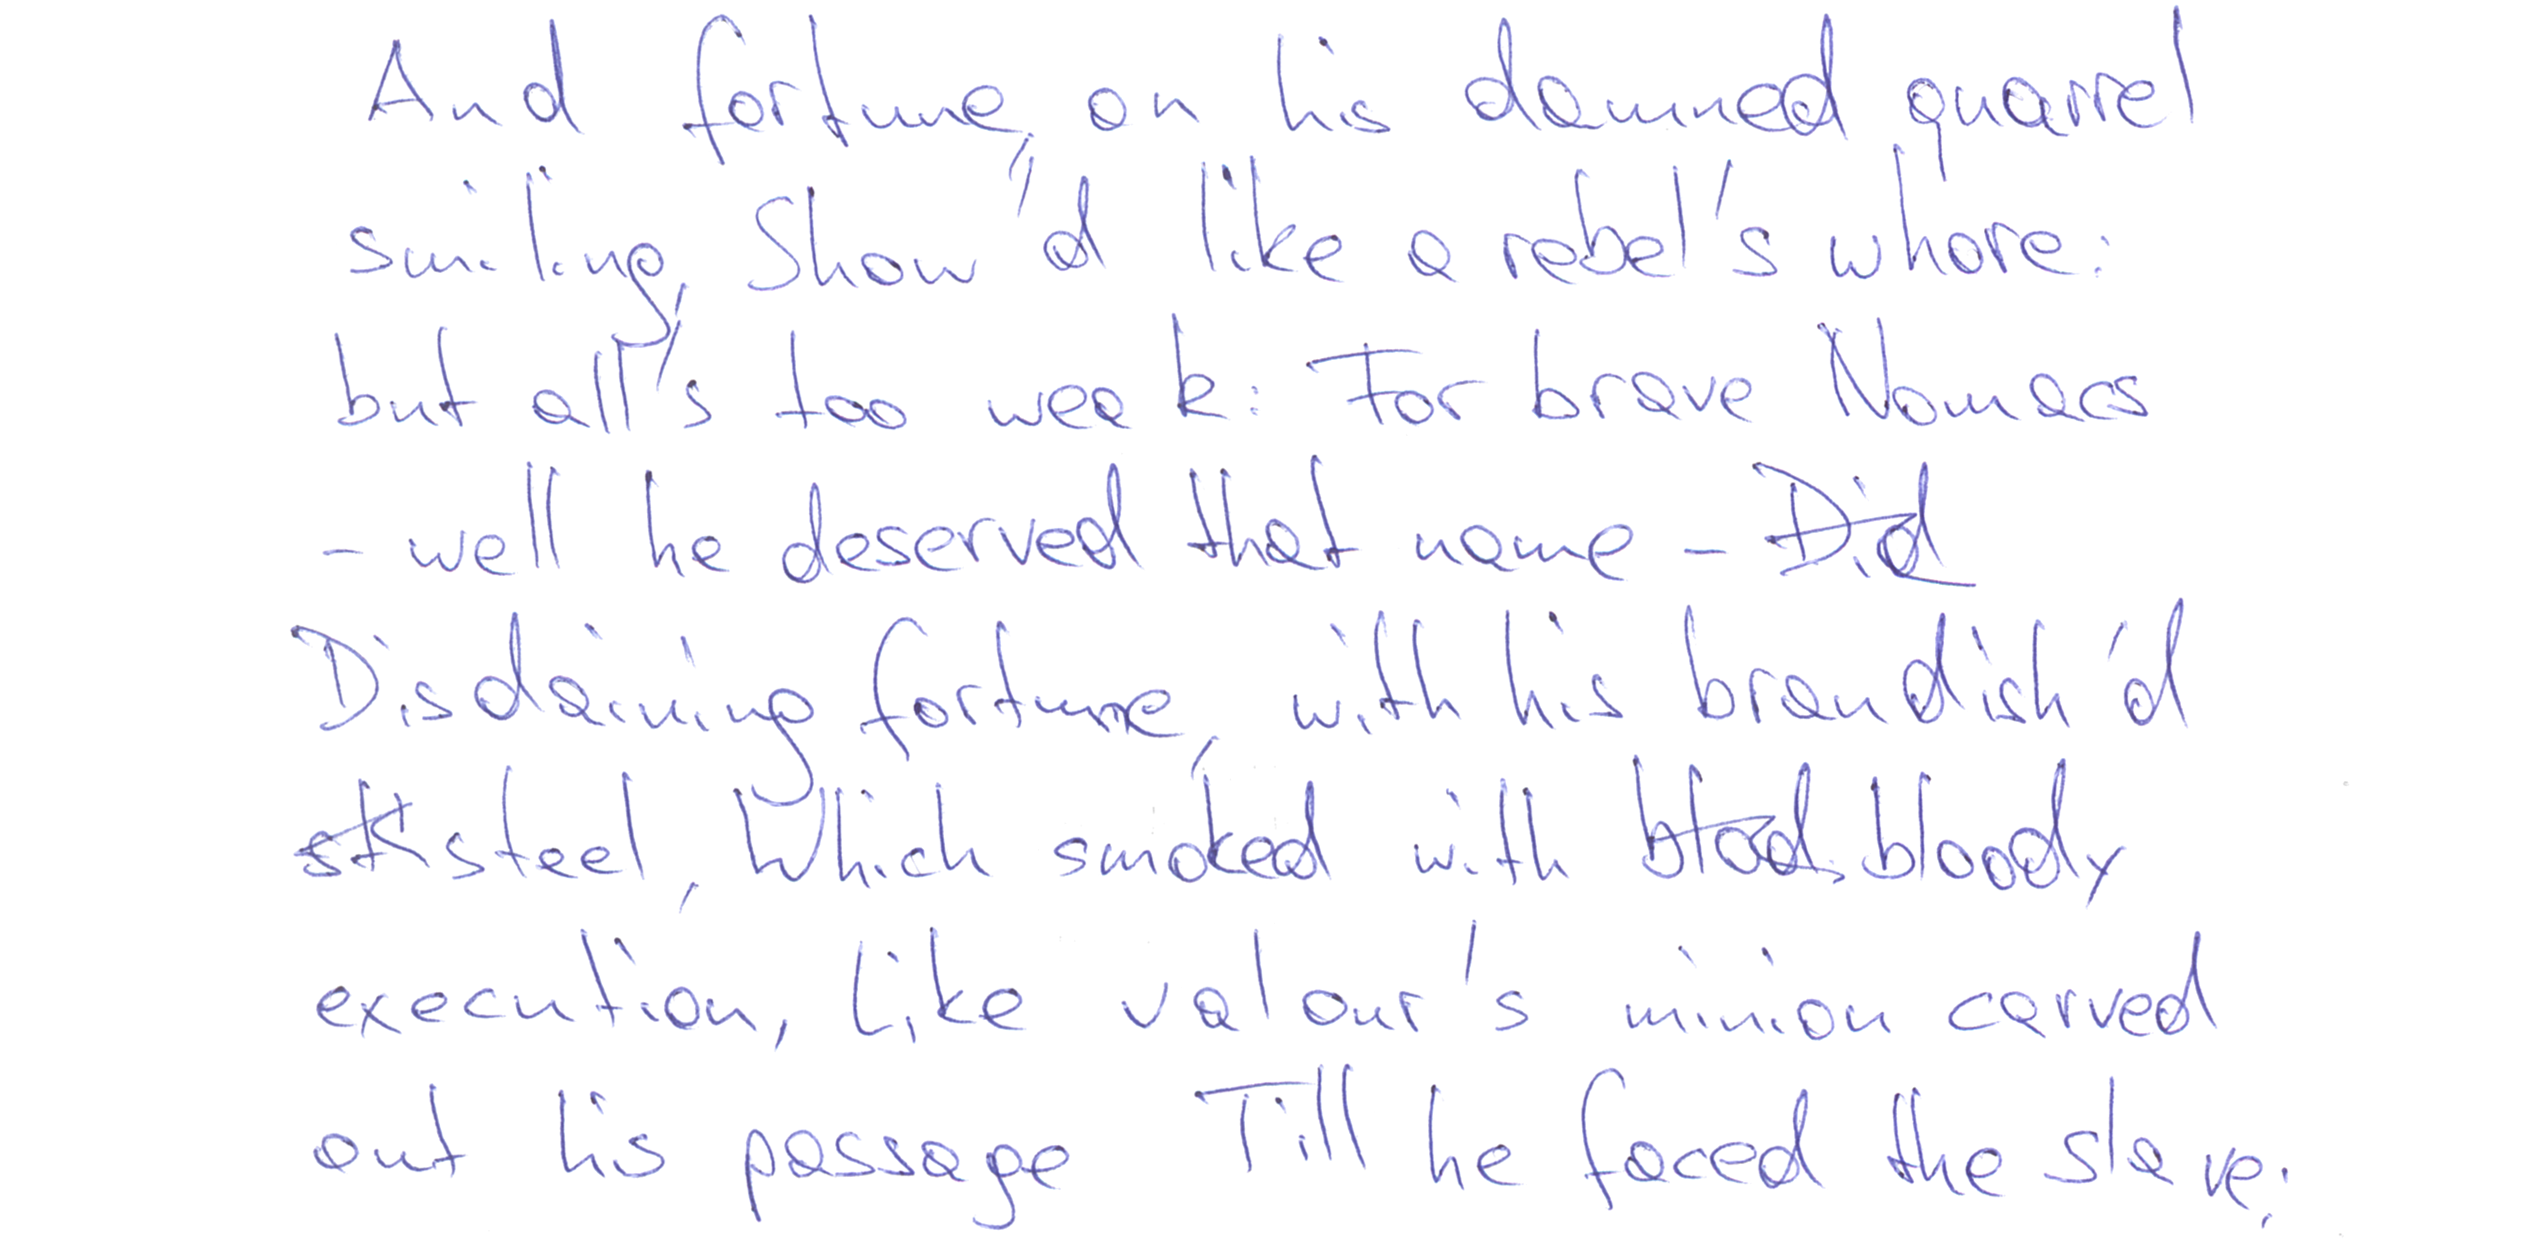 And fortune, on his damned quarrel
smiling, Show'd like a rebel's whore:
but all's too weak: For brave Nomacs
- well he deserved that name - Did
Disdaining fortune, with his brandish'd
steel, Which smoked with blood bloody
execution, Like valour's minion carved
out his passage Till he faced the slave;